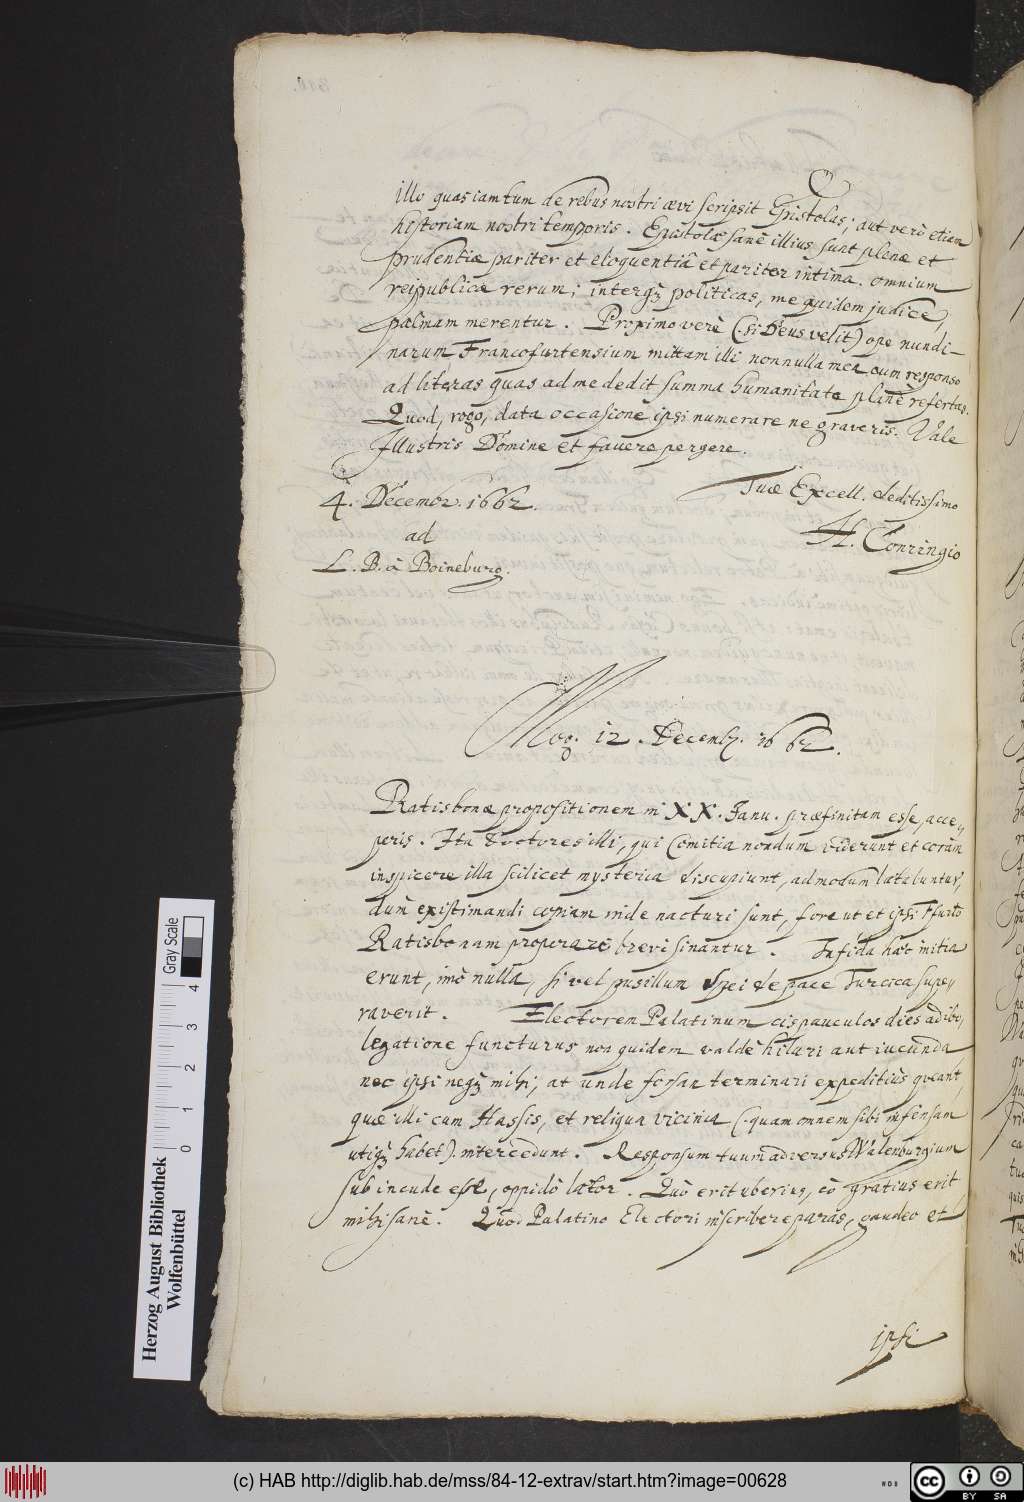 illo quas iamtum de rebus nostri ævi scripsit Epistolas; aut verò etiam
historiam nostri temporis. Epistolæ sanè illius sunt plenæ et
prudentiæ pariter et eloquentiâ et pariter intima omnium
reipublicæ rerum; interq́z politicas, me quidem judice,
palmam merentur. Proximo verè (si Deus velit) ope nundi-
narum Francofurtensium mittam illi nonnulla mea cum responso
ad literas quas ad me dedit summa humanitate planè refertas.
Quod, rogo, data occasione ipsi numerare ne graveris. Vale
Illustris Domine et favere perge.
4. Decembr. 1662.
Tuæ Excell. deditissimo
ad
H. Conringio
L. B. à Boineburg.
Mog. 12. Decemb. 1662.
Ratisbonæ propositionem in XX. Janu. præfinitam esse, acce,,
peris. Ita Doctores illi, qui Comitia nondum viderunt et coràm
inspicere illa scilicet mysteria discupiunt, admodum lætabuntur,
dum existimandi copiam inde nacturi sunt, fore ut et ipsi Ffurto
Ratisbonam properare brevi sinantur. Infida hæc initia
erunt, imò nulla, si vel pusillum spei de pace Turcica supe,,
raverit. Electorem Palatinum cis pauculos dies adibo,
legatione functurus non quidem valdè hilari aut iucunda
nec ipsi neq́z mihi, at unde forsan terminari expeditiùs queant,
quæ illi cum Hassis, et reliqua vicinia (quam omnem sibi infensam
utiq́z habet) intercedunt. Responsum tuum adversus Walenburgium
sub incude esse, oppidò lætor. Quò erit uberius, eò gratius erit
mihi sanè. Quod Palatino Electori inscribere paras, gaudeo et
ipsi
Herzog August Bibliothek
Wolfenbüttel
Gray Scale
0 1 2 3 4
(c) HAB http://diglib.hab.de/mss/84-12-extrav/start.htm?image=00628
cc BY SA